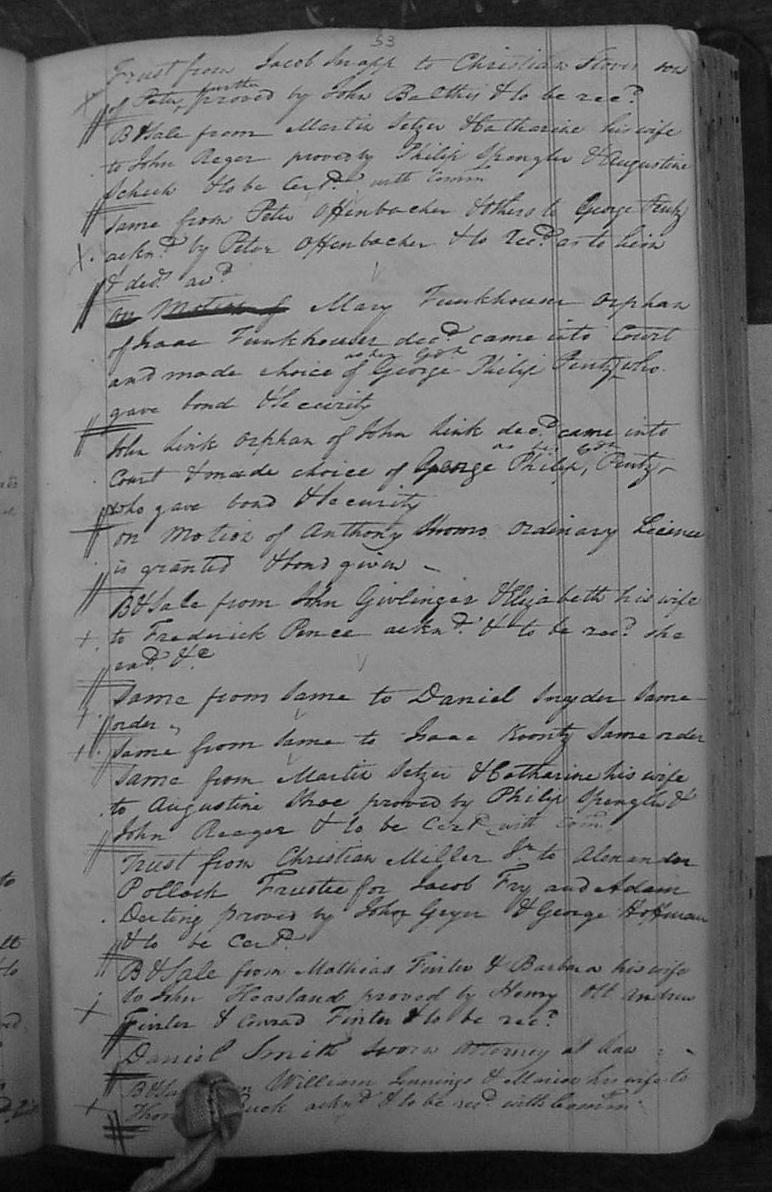 53
Trust from Jacob Snapp to Christian Stover son
of Peter, further proved by John Balthis & to be recd.
B&Sale from Martin Setzer & Catharine his wife
to John Reger proved by Philip Spengler & Augustine
& to be Cerd. with Comm
Same from Peter Offenbacher & others to George Pentz
ackd. by Peter Offenbacher & to Recd. as to him
& ded. awd.
On Motion of Mary Funkhouser orphan
of Isaac Funkhouser decd. came into Court
and made choice of George Philip Pentz as her Gdn who
gave bond & Security
John Link orphan of John Link decd. came into
Court & made choice of George Philip Pentz as his Gdn
who gave bond & Security
on Motion of Anthony ordinary Licence
is granted & bond given
B&Sale from John Givlinger & Elizabeth his wife
to Frederick Pence acknd. & to be recd. she
exd. &c
Same from Same to Daniel Snyder Same
order
Same from Same to Isaac Koontz Same order
Same from Martin Setzer & Catharine his wife
to Augustine proved by Philip Spengler &
John Reager & to be Cerd. with Com
Trust from Christian Miller Jr to Alexander
Pollock Trustee for Jacob Fry and Adam
proved by John Geyer & George Hoffman
& to be Cerd.
B&Sale from Mathias Finter & Barbara his wife
to John proved by Henry Ott Andrew
Finter & Conrad Finter & to be recd.
Daniel Smith sworn Attorney at law
William Jennings & his wife to
Buck acknd & to be recd with Comm